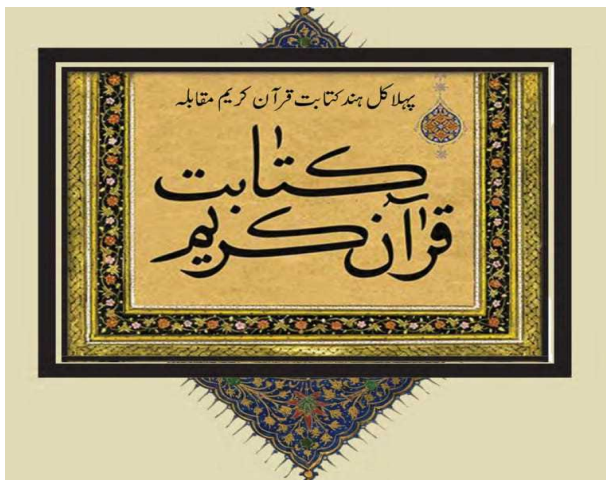 پہلا کل ہند کتابت قرآن کریم مقابلہ
کتابت
قرآن کریم